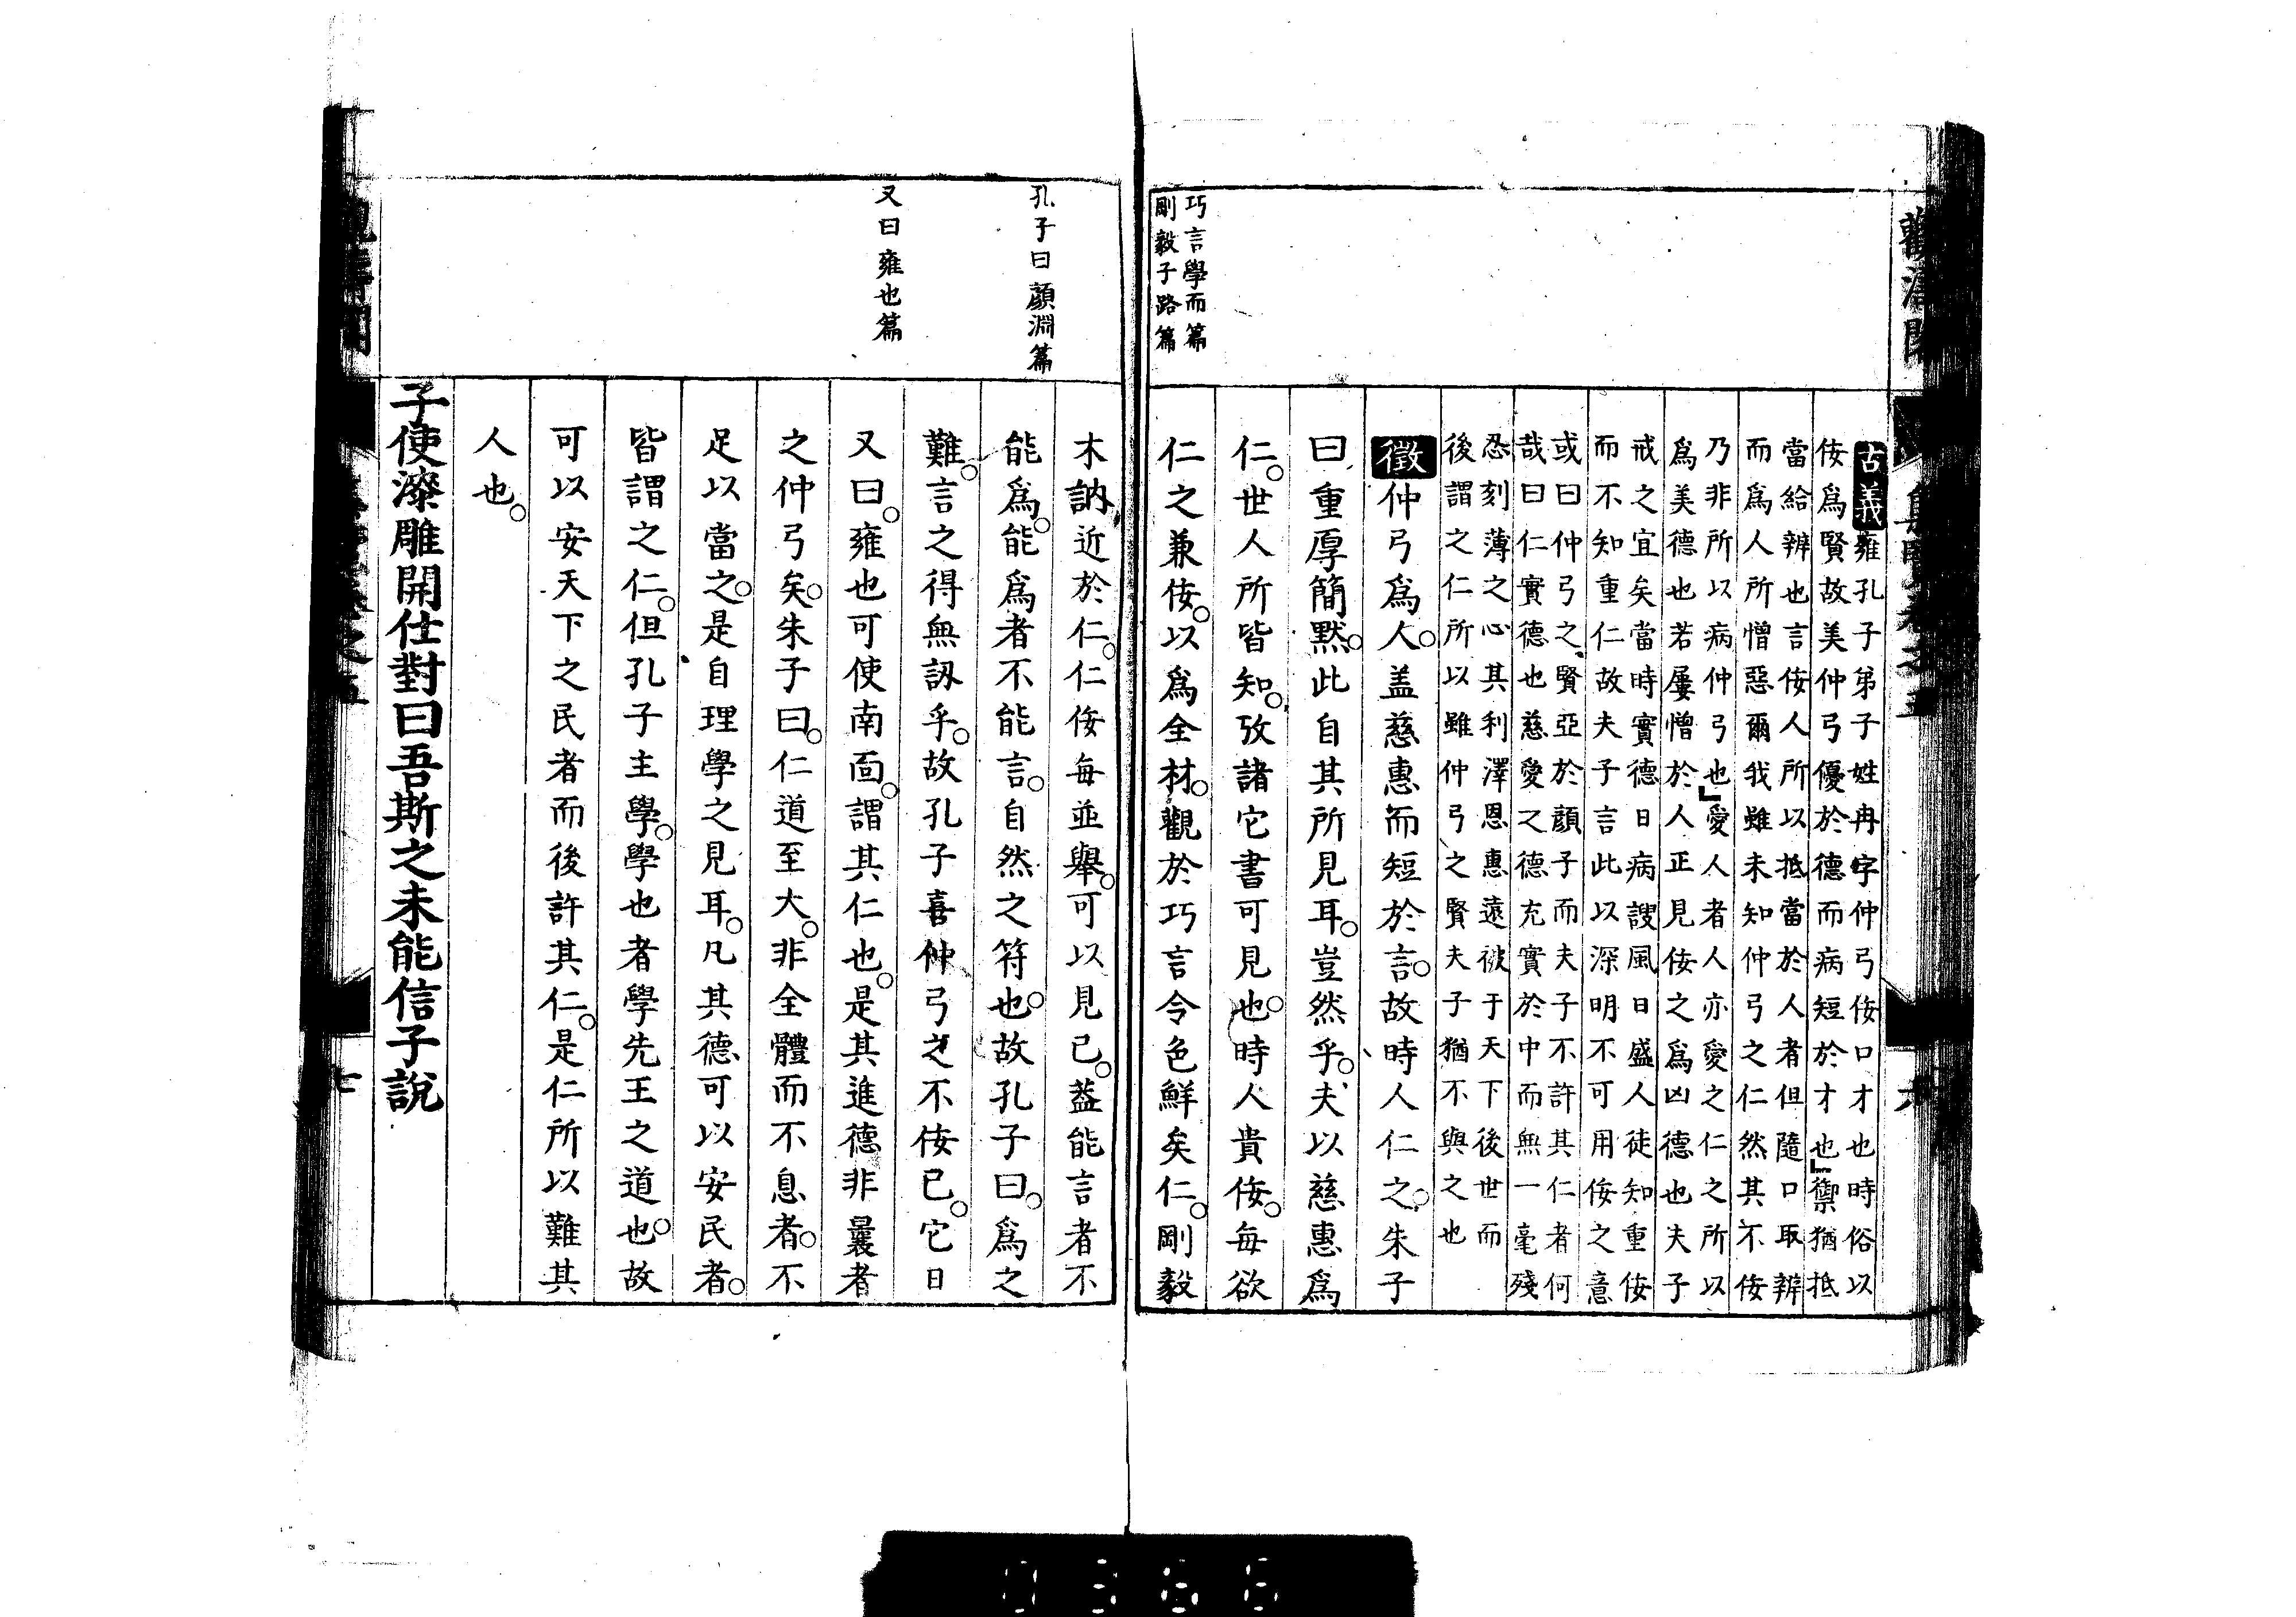 古義雍孔子弟子姓冉字仲弓佞口才也時俗以
佞爲賢故美仲弓優於德而病短於才也禦猶抵
當給辨也言佞人所以抵當於人者但隨口取辨
而爲人所憎惡爾我雖未知仲弓之仁然其不佞
乃非所以病仲弓也愛人者人亦愛之仁之所以
爲美德也若屢憎於人正見佞之爲凶德也夫子
戒之宜矣當時實德日病謏風日盛人徒知重佞
而不知重仁故夫子言此以深明不可用佞之意
或曰仲弓之賢亞於顔子而夫子不許其仁者何
哉曰仁實德也慈愛之德充實於中而無一毫殘
忍刻薄之心其利澤恩惠遠被于天下後世而
後謂之仁所以雖仲弓之賢夫子猶不與之也
徵仲弓爲人。盖慈惠而短於言。故時人仁之。朱子
曰重厚簡默。此自其所見耳。豈然乎。夫以慈惠爲
仁。世人所皆知。攷諸它書可見也。時人貴佞。每欲
仁之兼佞。以爲全材。觀於巧言令色鮮矣仁。剛毅
巧言學而篇
剛毅子路篇
木訥近於仁。仁佞每並舉。可以見已。蓋能言者不
能爲。能爲者不能言。自然之符也。故孔子曰。爲之
難。言之得無訒乎。故孔子喜仲弓之不佞已。它日
又曰。雍也可使南面。謂其仁也。是其進德非曩者
之仲弓矣。朱子曰。仁道至大。非全體而不息者。不
足以當之。是自理學之見耳。凡其德可以安民者。
皆謂之仁。但孔子主學。學也者學先王之道也。故
可以安天下之民者而後許其仁。是仁所以難其
人也。
子使漆雕開仕對曰吾斯之未能信子説
孔子曰顔淵篇
又曰雍也篇